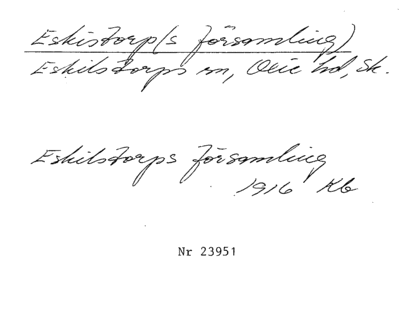 Eskistorp(s församling)
Eskilstorps sn, Oxie hd, Sk.
Eskilstorps församling
1916 Kb
Nr 23951